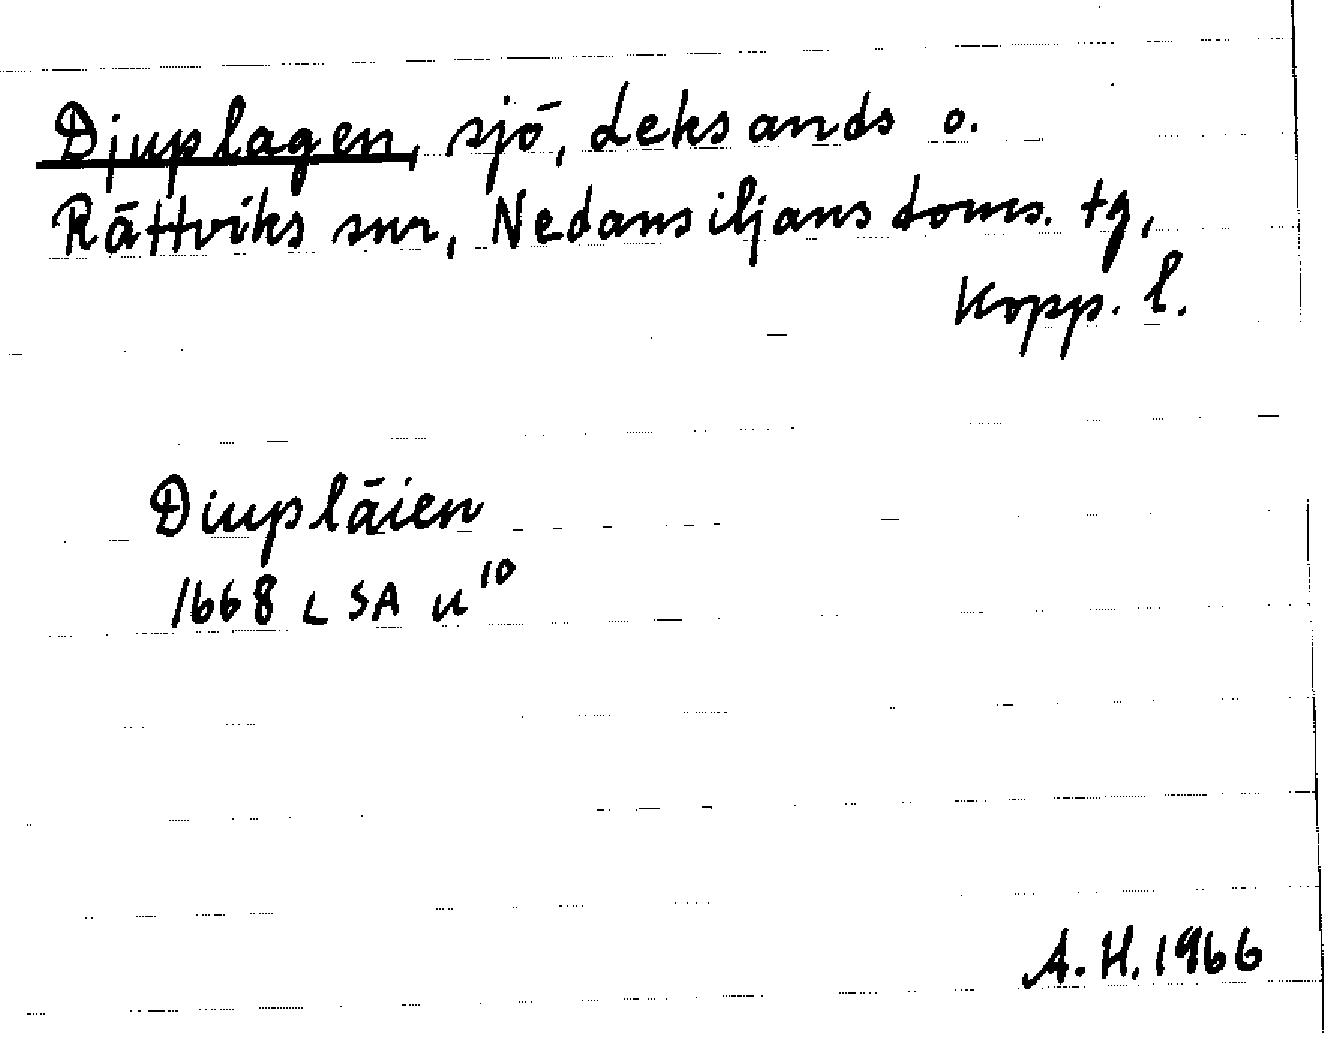 Djuplagen, sjö, Leksands o.
Rättviks snr, Nedansiljans doms. tg,
Kopp. l.
Diupläien
1668 LSA u10
A. H. 1966